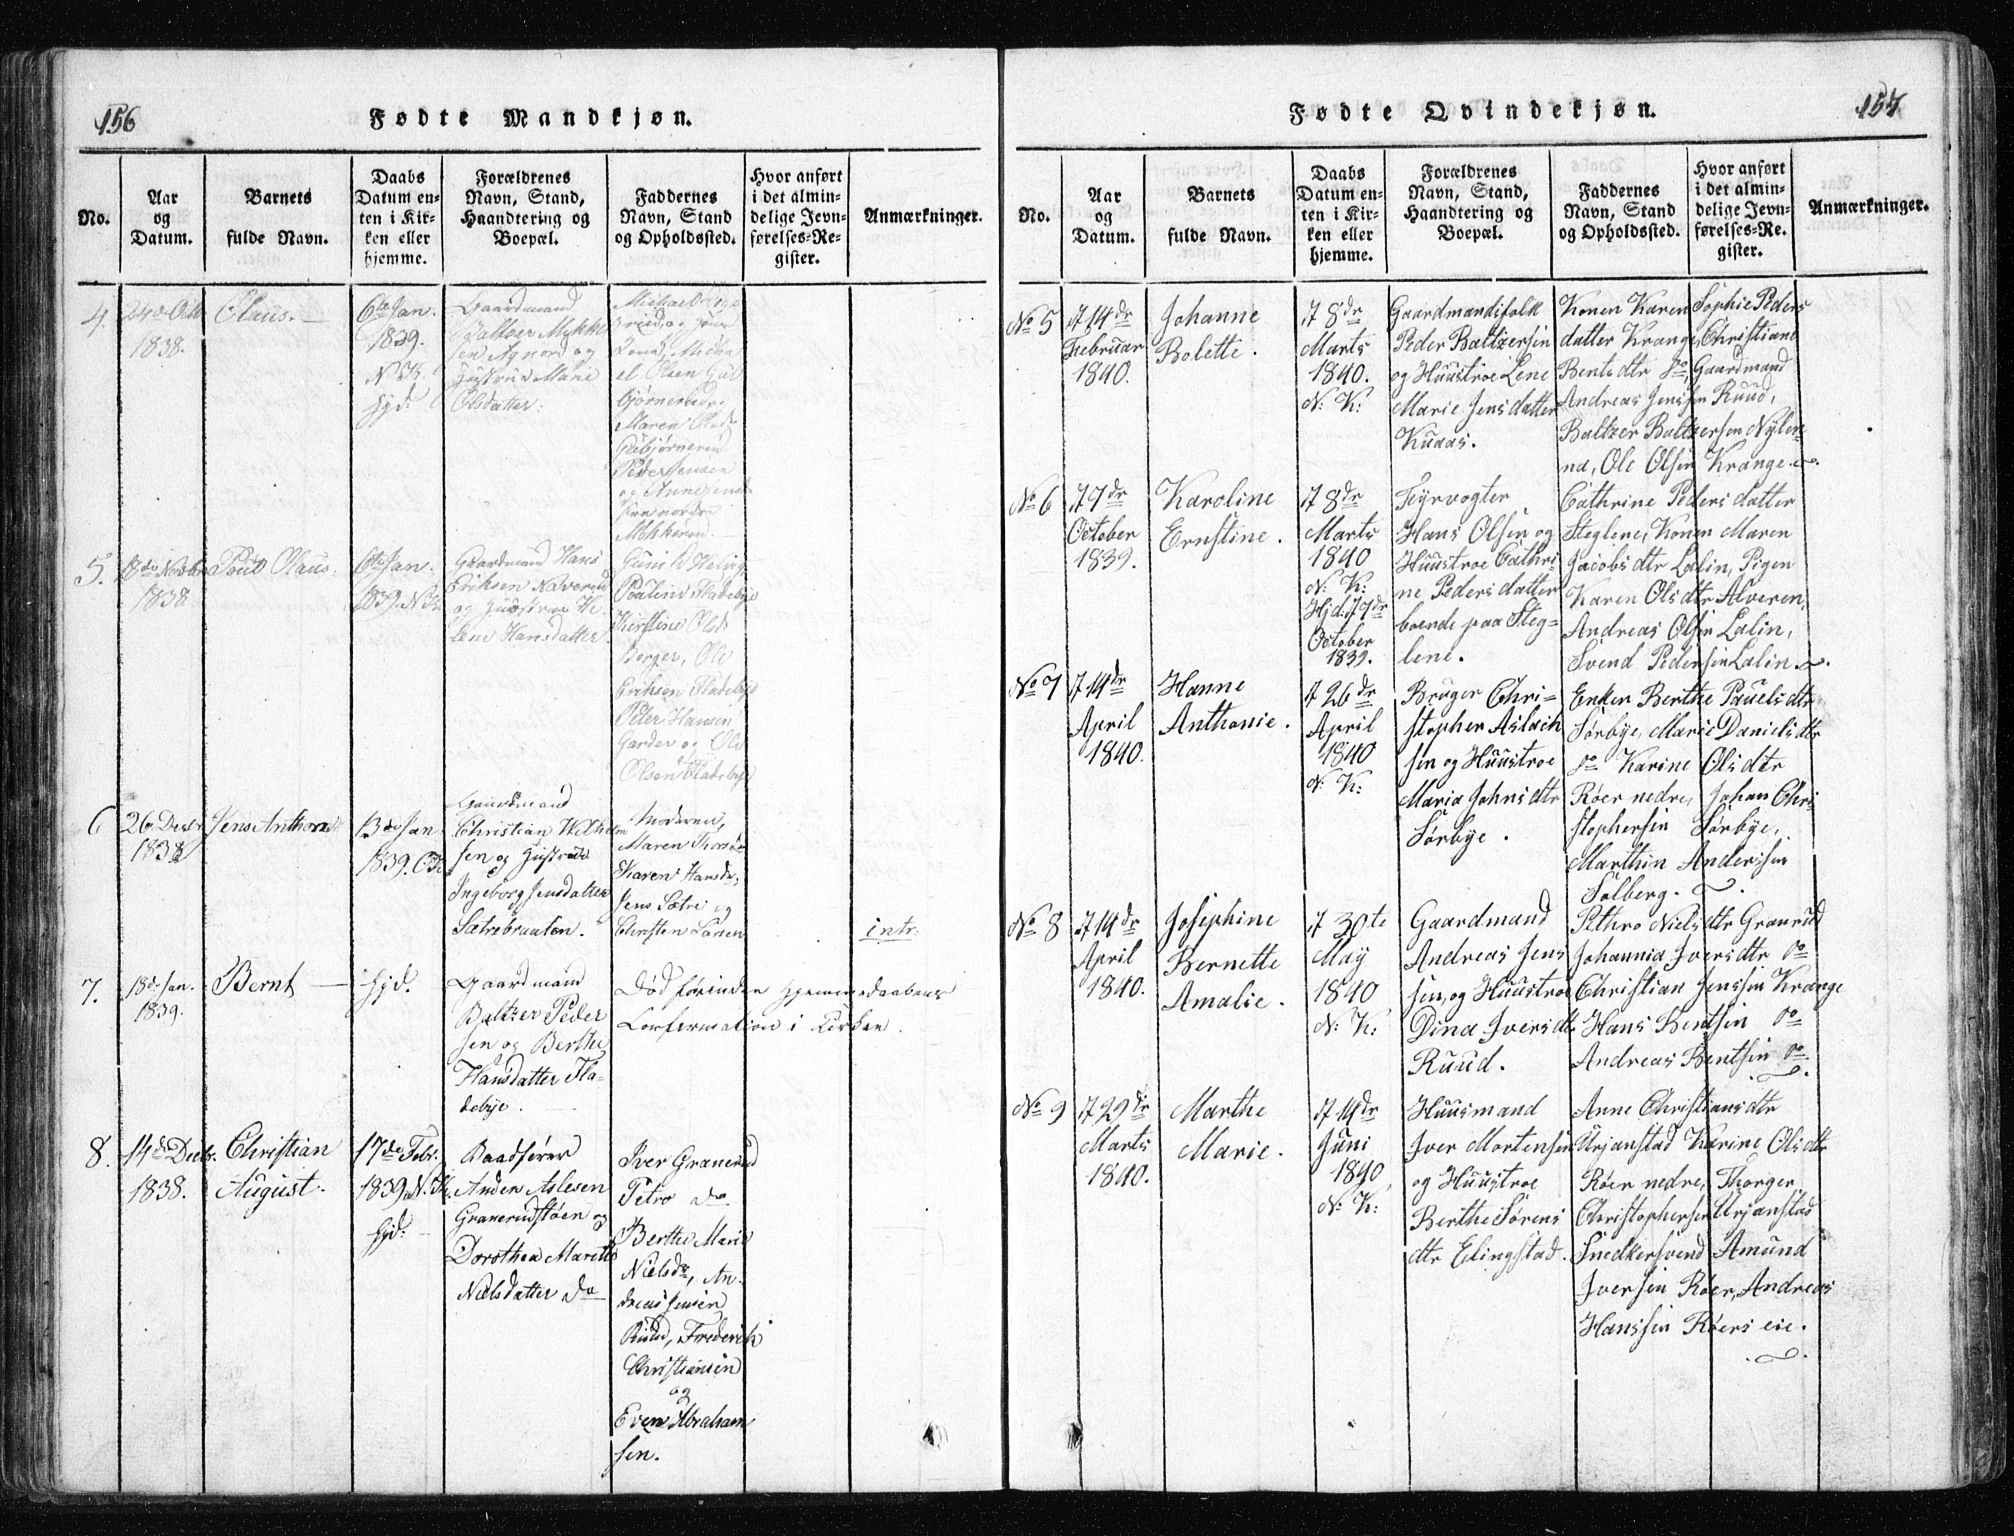 156
Fødte Mandkjøn.
No.
Aar
og
Datum.
Barnets
fulde Navn.
Daabs
Datum en-
ten i Kir-
ken eller
hjemme.
Forældrenes
Navn, Stand,
Haandtering og
Boepæl.
Faddernes
Navn, Stand
og Opholdssted.
Hvor anført
i det almin-
delige Jevn-
førelses-Re-
gister.
Anmærkninger.
4.
1838.
Claus.
6te Jan.
1839.
N K.
Hjd:
Gaardmand
Baltzer
og
Hustrue Marie
Olsdatter.
Michael
el Olsen
Maren Olsd.
Peder Jensen
5.
1838
Poul Olaus.
6te Jan.
1839. N.K.
Gaardmand Hans
Eriksen
og Hustrue He-
lene Hansdatter.
Pauline Fladebye
Kirstine Olsd.
Berger, Ole
Eriksen Fladebye
Peter Hansen
Garder og Ole
Olsen Fladebye
6
26 Decbr
1838
Jens Anthon
13de Jan
1839.
Gaardmand
Christian Wilhelm
sen og Hustrue
Ingeborg Jensdatter
Sætrebraaten.
Moderen,
Maren
Karen Hansdr,
Jens Sætre og
Christen Larsen
intr:
7.
18de Jan.
1839.
Bernt
Hjd.
Gaardmand
Baltzer Peder
sen og Berthe
Hansdatter Fla-
debye.
Død førinden Hjemmedaabens
Confirmation i Kirken.
8.
14de Decbr.
1838.
Christian
August.
17de Febr.
1839. N.K.
Hjd:
Baadfører
Anders Aslesen
Granerudstøen og
Dorothea Marethe
Nielsdatter do
Iver Granerud
Petro do
Berthe Marie
Nielsdr, An-
dreas Jensen
Ruud, Frederich
Christiansen
og
Even Abraham
sen.
157
Fødte Qvindekjøn.
No.
Aar
og
Datum.
Barnets
fulde Navn.
Daabs
Datum en-
ten i Kir-
ken eller
hjemme.
Forældrenes
Navn, Stand,
Haandtering og
Boepæl.
Faddernes
Navn, Stand
og Opholdssted.
Hvor anført
i det almin-
delige Jevn-
førelses-Re-
gister.
Anmærkninger.
No 5
d 14dr
Februar
1840.
Johanne
Bolette.
d 8dr
Marts
1840.
N: K:
Gaardmandsfolk
Peder Baltzersen
og Huustroe Lene
Marie Jensdatter
Knaas.
Konen Karen Sophie Peders
datter Krange, Christiane
Bentsdtr do, Gaardmand
Andreas Jensen Ruud,
Baltzer Baltzersen Nylen-
na, Ole Olsen Krange.
No 6
d 7dr
October
1839.
Karoline
Ernstine.
d 8dr
Marts
1840
N: K:
Hjd: d 7dr
October
1839.
Fyrvogter
Hans Olsen og
Huustroe Cathri-
ne Pedersdatter
boende paa Steg-
lene.
Cathrine Pedersdatter
Steglene, Konen Maren
Jacobsdtr Lalin, Pigen
Karen Olsdtr Alveren,
Andreas Olsen Lalin,
Svend Pedersen Lalin.
No 7
d 14dr
April
1840.
Hanne
Anthonie.
d 26dr
April
1840
N: K:
Bruger Chri-
stopher Aslach
sen og Huustroe
Maria Johnsdtr
Sørbye.
Enken Berthe Pauelsdtr
Sørbye, Marie Danielsdtr
do Karine Olsdtr
Røer nedre, Johan Chri-
stophersen Sørbye,
Marthin Andersen
Solberg.
No 8
d 14dr
April
1840.
Josephine
Bernette
Amalie.
d 30te
May
1840
N: K:
Gaardmand
Andreas Jens
sen, og Huustroe
Dina Iversdtr
Ruud.
Pethro Nielsdtr Granrud
Johannia Iversdtr do
Christian Jenssen Krange
Hans Bentsen do
Andreas Bentsen do
No 9
d 29de
Marts
1840.
Marthe
Marie.
d 14dr
Juni
1840
N: K:
Huusmand
Iver Mortensen
og Huustroe
Berthe Sørens
dtr Elingstad.
Anne Christiansdtr
Urjanstad Karine Olsdtr
Røer nedre, Thorger
Christophersen Urjanstad
Snedkersvend Amund
Iversen Røer, Andreas
Hanssen Røers eie.